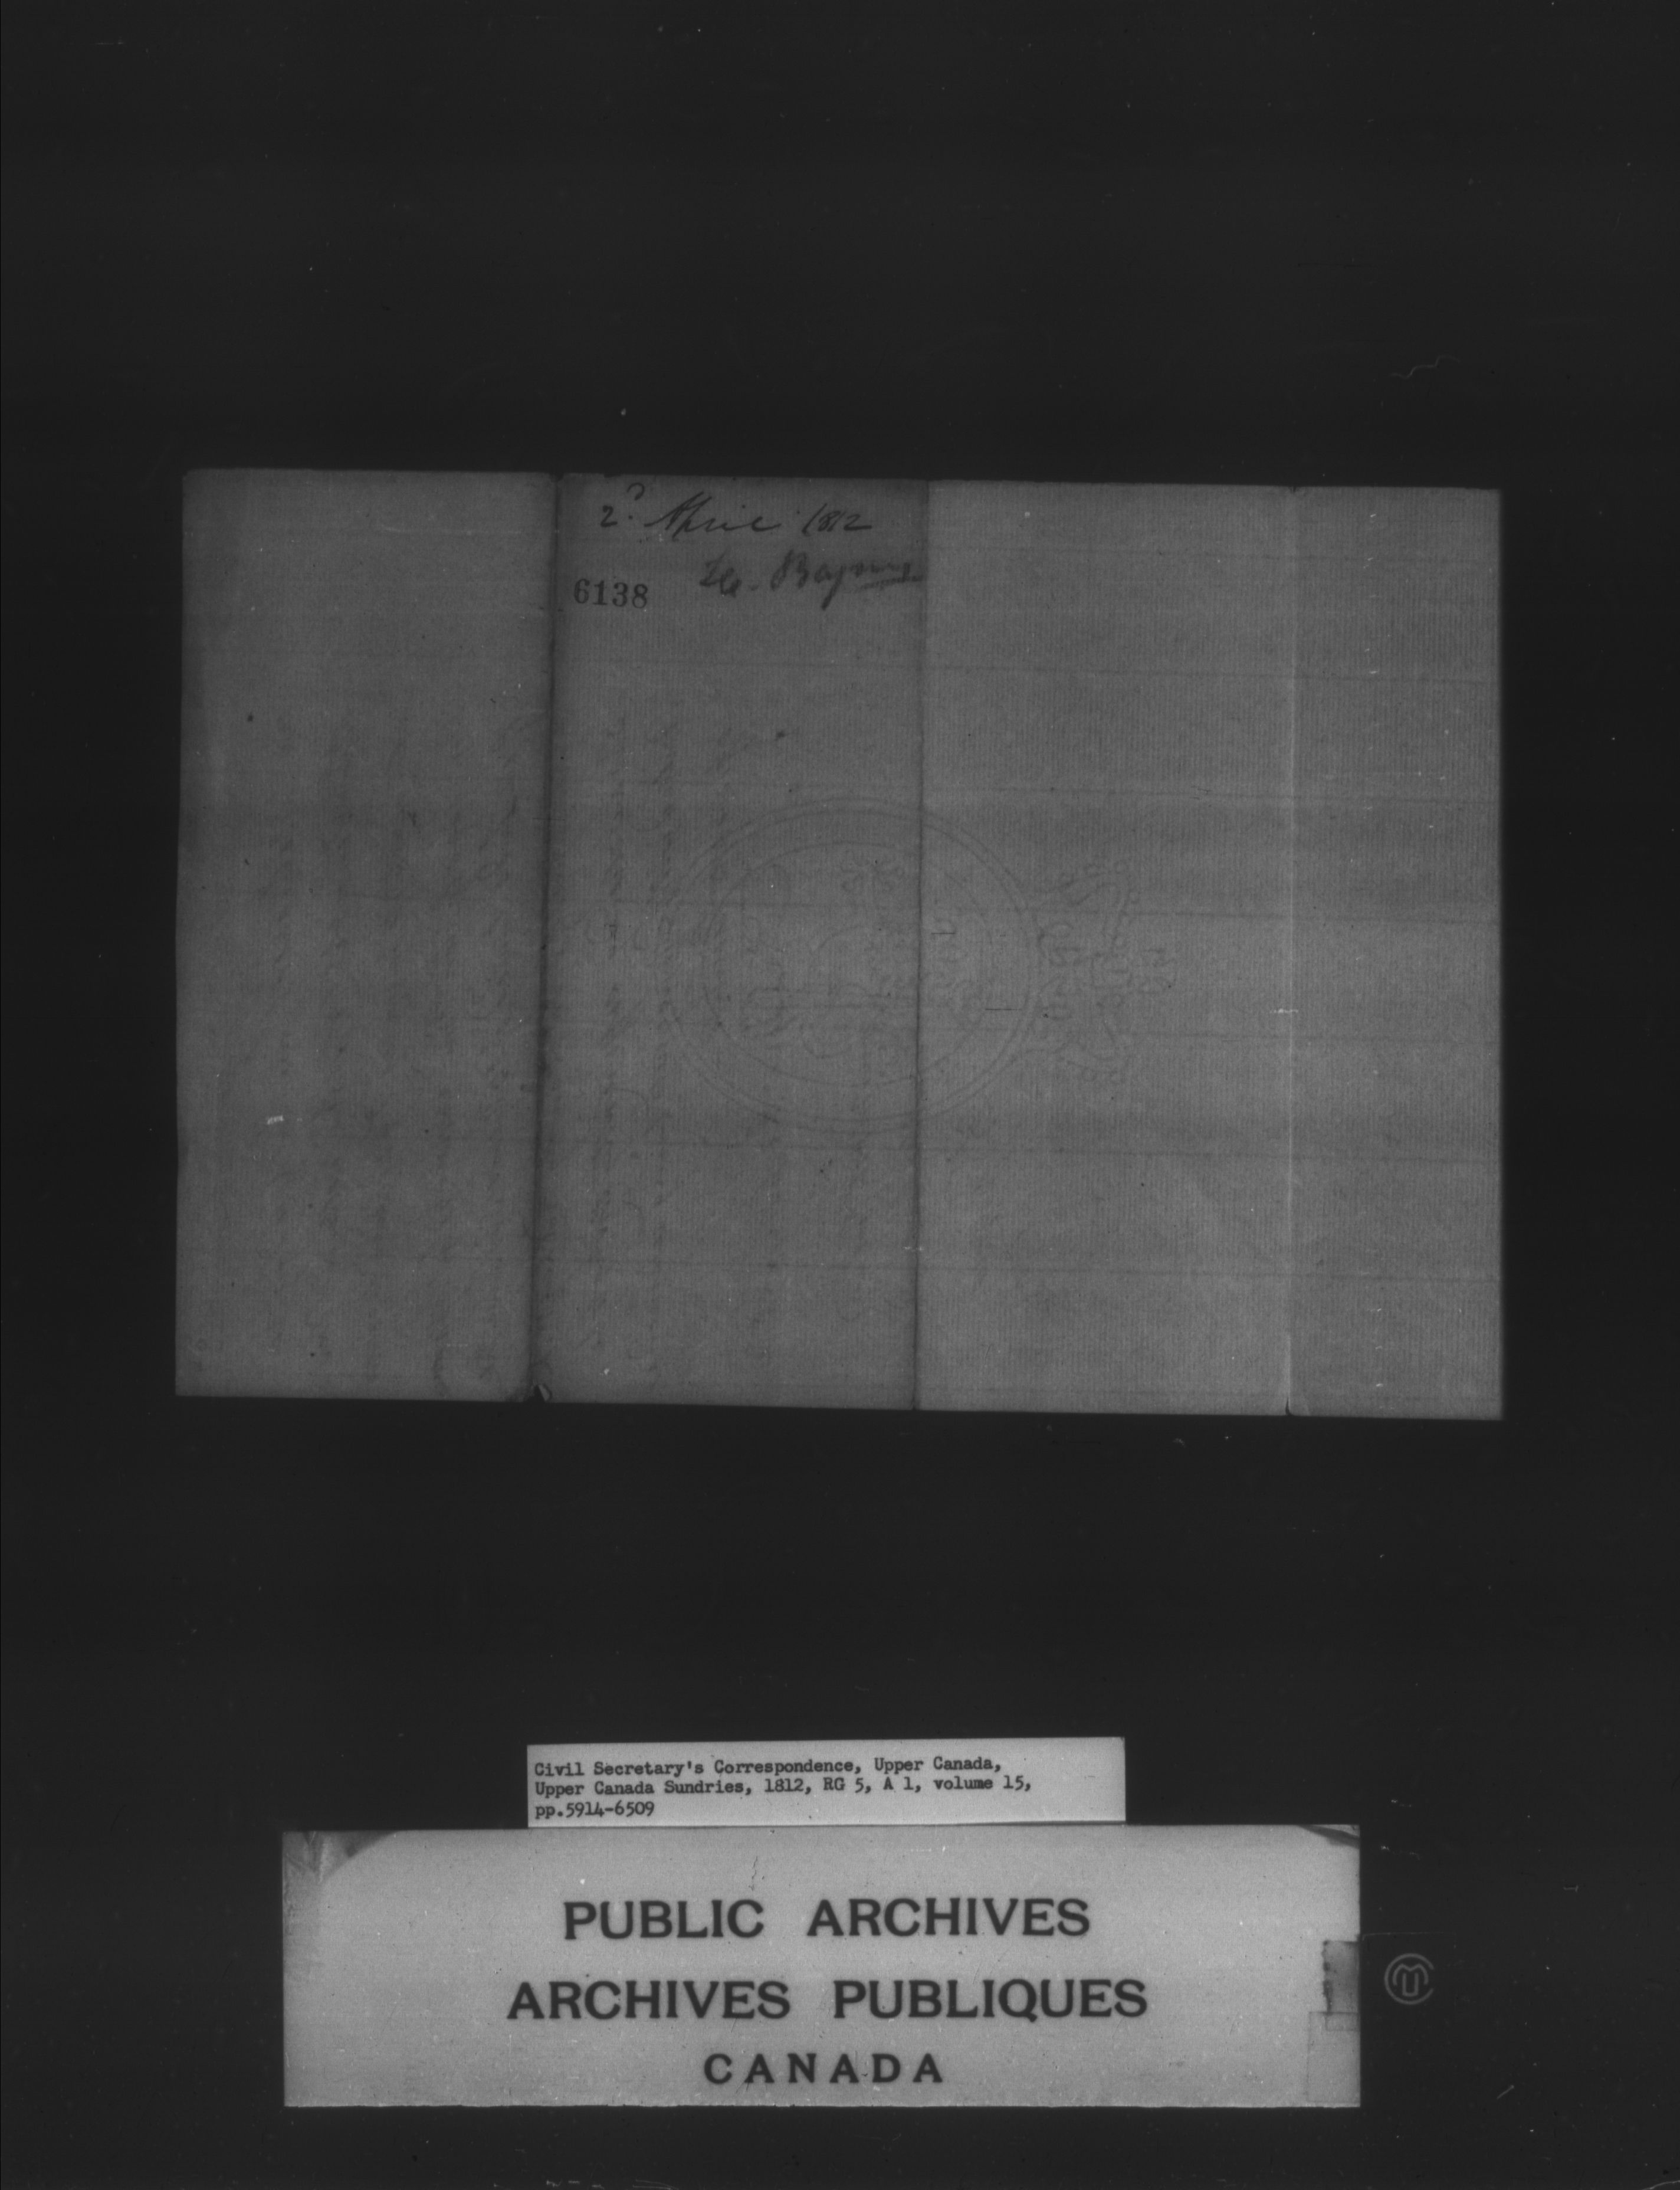 2d April 1812
6138
Civil Secretary's Correspondence, Upper Canada,
Upper Canada Sundries, 1812, RG 5, A 1, volume 15,
pp.5914-6509
PUBLIC ARCHIVES
ARCHIVES PUBLIQUES
CANADA